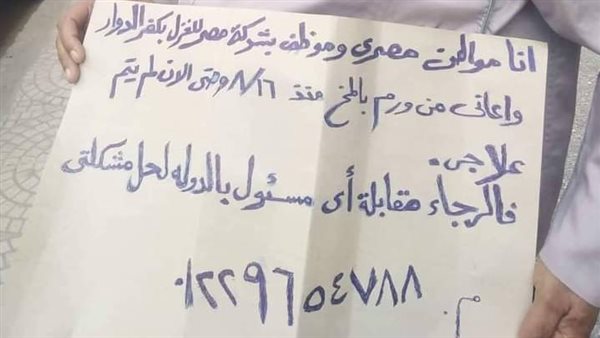 انا مواطن مصرى وموظف بشركة مصر للغزل بكفر الدوار
واعانى من ورم بالمخ منذ ٨/١٦ وحتى الان لم يتم
علاجى.
فالرجاء مقابلة أى مسئول بالدوله لحل مشكلتى
م. ٠١٢٢٩٦٥٤٧٨٨